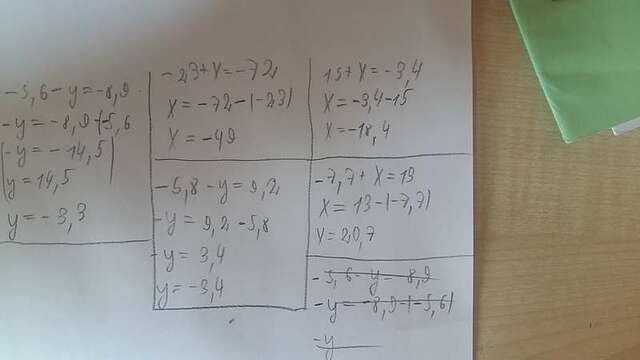 -5,6-y=-8,9
-y=-8,9-(-5,6
-y=-14,5
y=14,5
y=-3,3
-23+x=-72
x=-72-(-23)
x=-49
15+x=-3,4
x=-3,4-15
x=-18,4
-5,8-y=9,2
-y=9,2-5,8
-y=3,4
y=-3,4
-7,7+x=13
x=13-(-7,7)
x=20,7
-5,6-y=-8,9
-y=-8,9-(-5,6)
-y